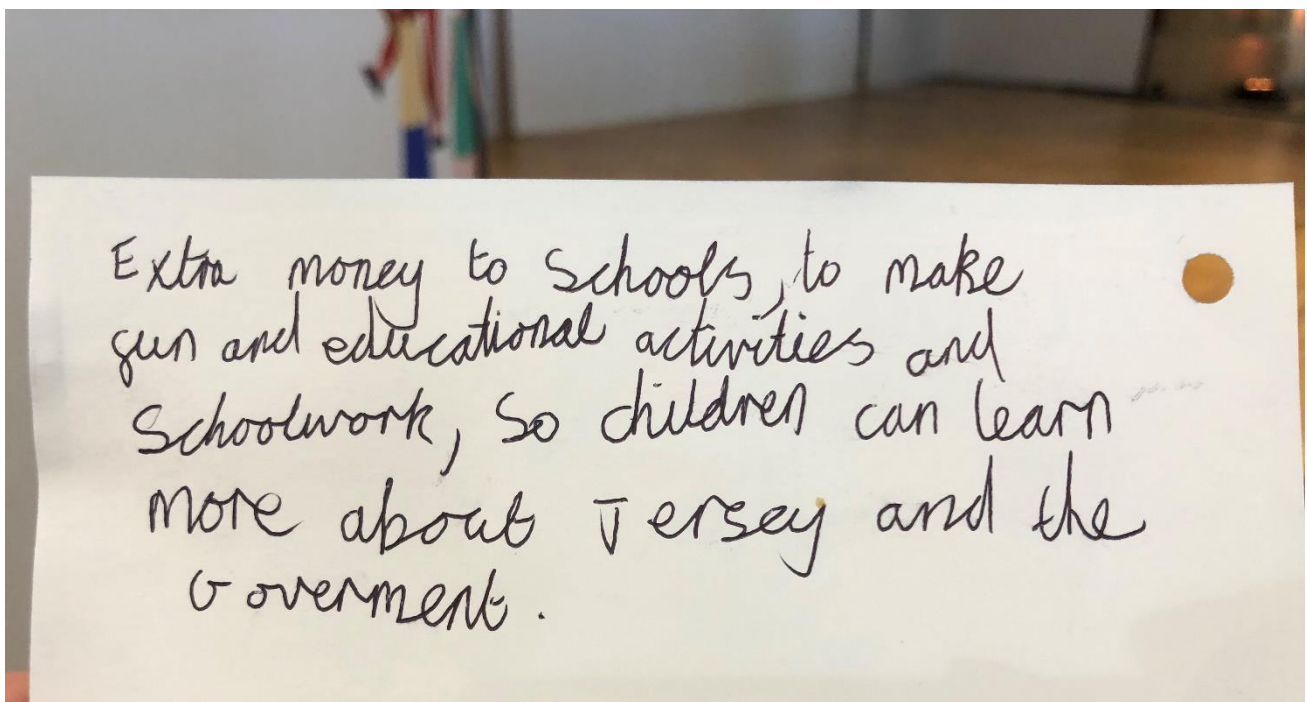 Extra money to Schools, to make
fun and educational activities and
Schoolwork, So children can learn
more about Jersey and the
Goverment.